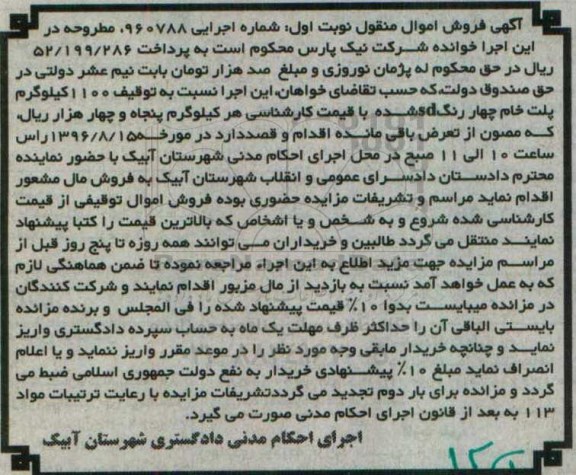 آگهی فروش اموال منقول نوبت اول: شماره اجرایی ۹۶۰۷۸۸، مطروحه در
این اجرا خوانده شرکت نیک پارس محکوم است به پرداخت ۵۲/۱۹۹/۲۸۶
ریال در حق محکوم له پژمان نوروزی و مبلغ صد هزار تومان بابت نیم عشر دولتی در
حق صندوق دولت،که حسب تقاضای خواهان،این اجرا نسبت به توقیف ۱۱۰۰کیلوگرم
پلت خام چهار رنگsdشده با قیمت کارشناسی هر کیلوگرم پنجاه و چهار هزار ریال،
که مصون از تعرض باقی مانده اقدام و قصددارد در مورخه۱۳۹۶/۸/۱۵راس
ساعت ۱۰ الی ۱۱ صبح در محل اجرای احکام مدنی شهرستان آبیک با حضور نماینده
محترم دادستان دادسرای عمومی و انقلاب شهرستان آبیک به فروش مال مشعور
اقدام نماید مراسم و تشریفات مزایده حضوری بوده فروش اموال توقیفی از قیمت
کارشناسی شده شروع و به شخص و یا اشخاص که بالاترین قیمت را کتبا پیشنهاد
نمایند منتقل می گردد طالبین و خریداران می توانند همه روزه تا پنج روز قبل از
مراسم مزایده جهت مزید اطلاع به این اجراء مراجعه نموده تا ضمن هماهنگی لازم
که به عمل خواهد آمد نسبت به بازدید از مال مزبور اقدام نمایند و شرکت کنندگان
در مزانده میبایست بدوا ۱۰٪ قیمت پیشنهاد شده را فی المجلس و برنده مزانده
بایستی الباقی آن را حداکثر ظرف مهلت یک ماه به حساب سپرده دادگستری واریز
نماید و چنانچه خریدار مابقی وجه مورد نظر را در موعد مقرر واریز ننماید و یا اعلام
انصراف نماید مبلغ ۱۰٪ پیشنهادی خریدار به نفع دولت جمهوری اسلامی ضبط می
گردد و مزانده برای بار دوم تجدید می گرددتشریفات مزایده با رعایت ترتیبات مواد
۱۱۳ به بعد از قانون اجرای احکام مدنی صورت می گیرد.
اجرای احکام مدنی دادگستری شهرستان آبیک